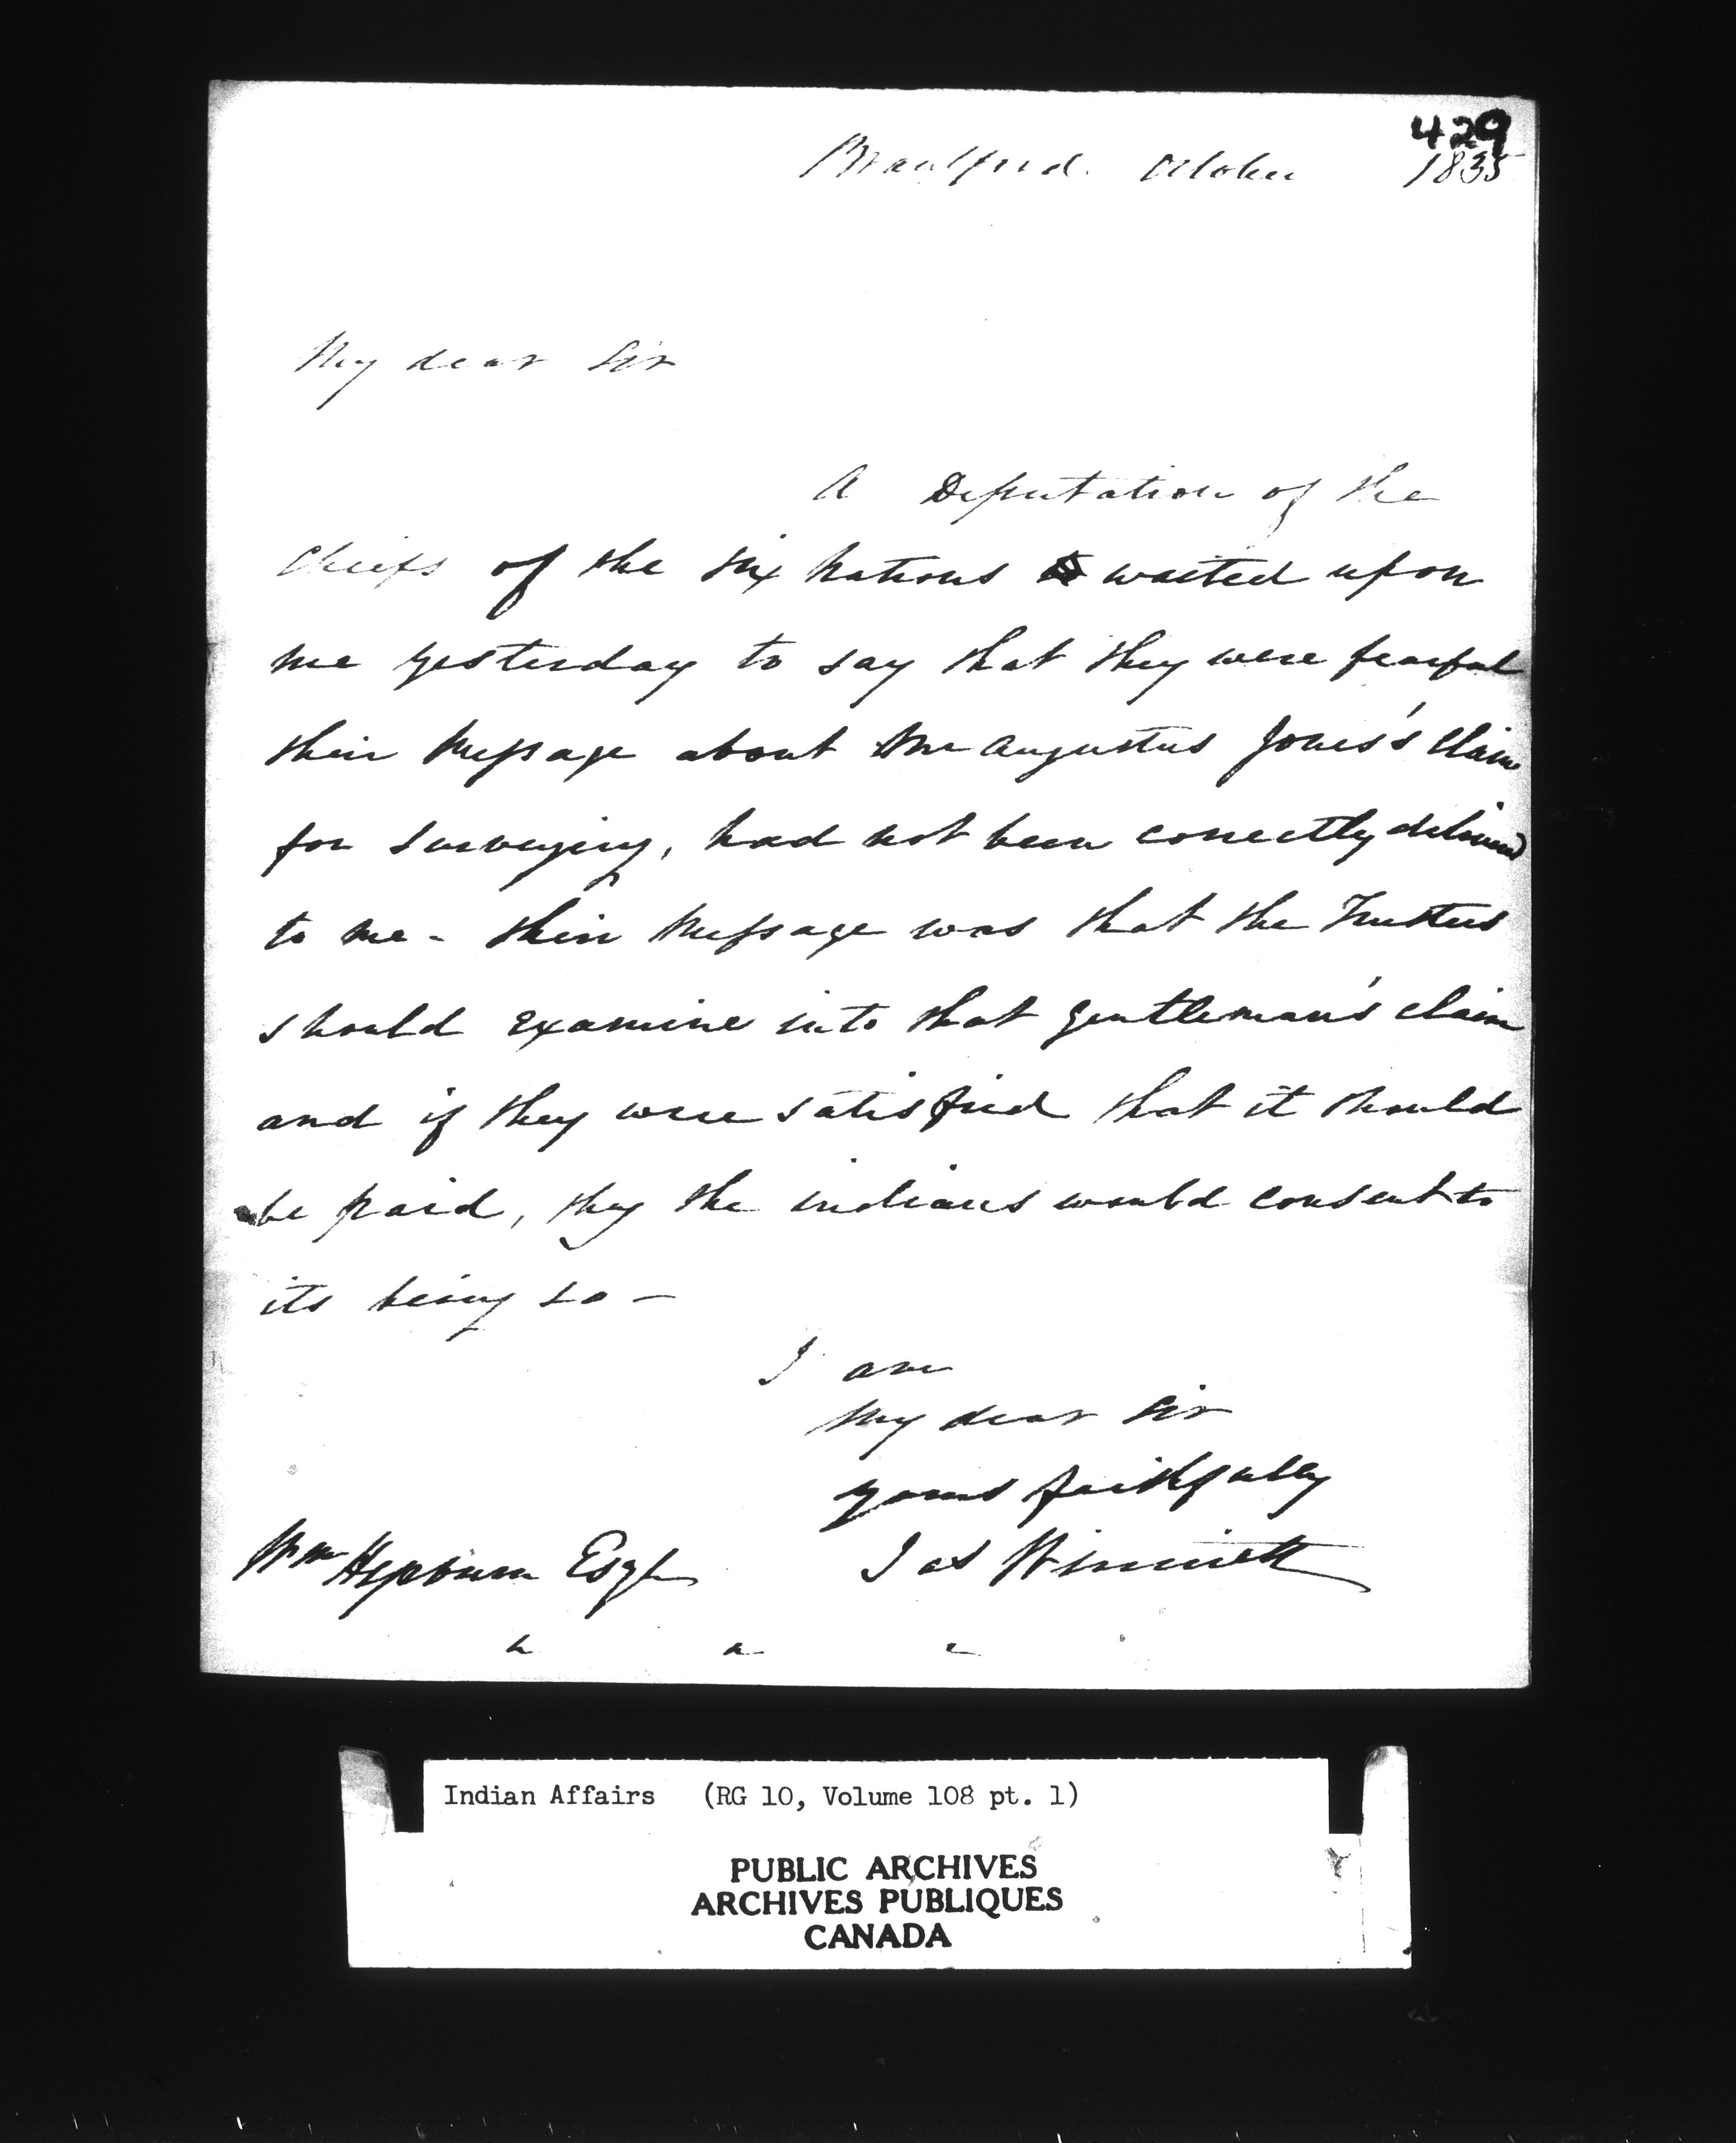 429
Brantford October 1835
My dear Sir
A Deputation of the
Chiefs of the Six Nations waited upon
me yesterday to say that they were fearful
their Message about Mr Augustus Jones's Claim
for Surveying, had not been correctly delivered
to me - their Message was that the Trustees
should examine into that gentleman's claim
and if they were satisfied that it should
be paid, they the indians would consent to
its being so -
I am
My dear Sir
yours faithfully
Jas Winniett
Wm Hepburn Esqr
Indian Affairs (RG 10, Volume 108 pt. 1)
PUBLIC ARCHIVES
ARCHIVES PUBLIQUES
CANADA